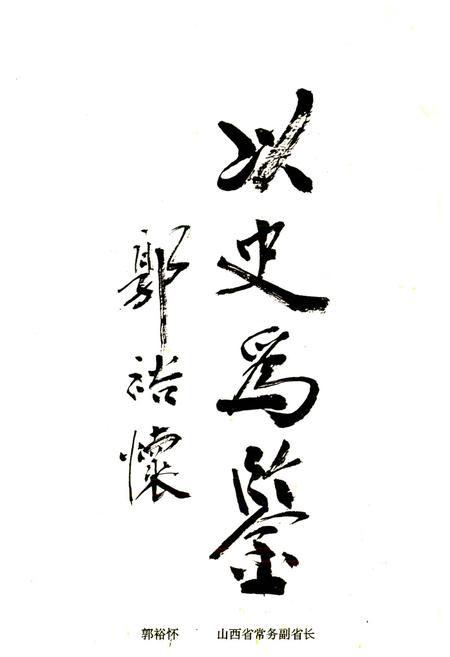 以史为鉴
郭裕懷
郭裕怀 山西省常务副省长